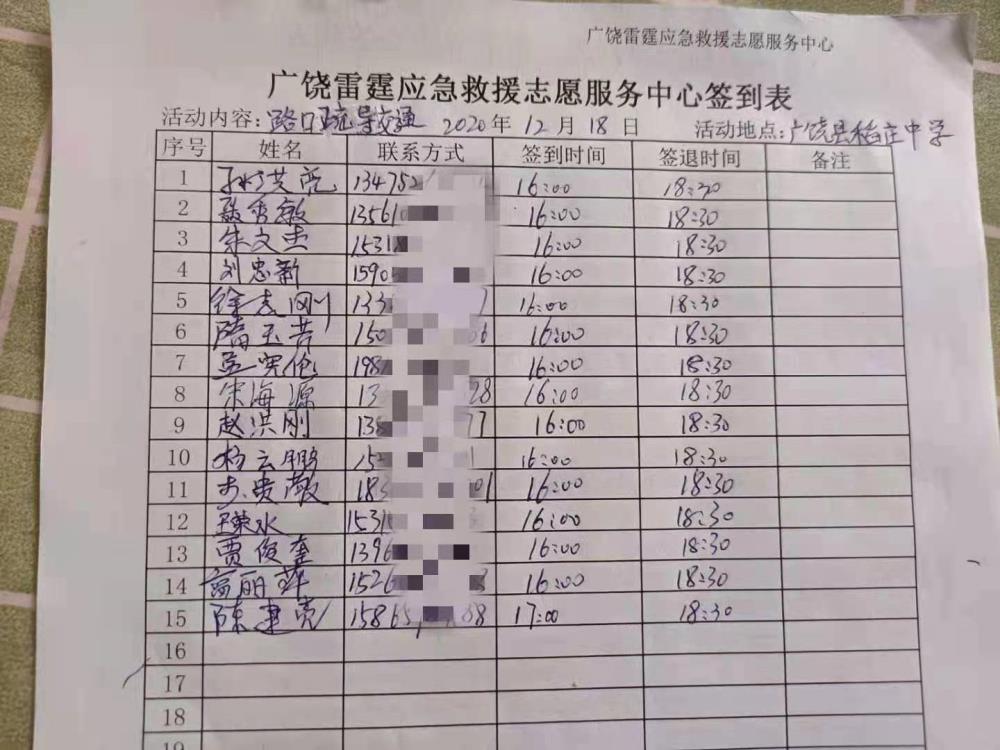 广饶雷霆应急救援志愿服务中心
广饶雷霆应急救援志愿服务中心签到表
活动内容：路口疏导交通 2020年 12月 18日 活动地点：广饶县稻庄中学
序号 姓名 联系方式 签到时间 签退时间 备注
1 134752 16:00 18:30
2 13561 16:00 18:30
3 朱文杰 1531 16:00 18:30
4 刘忠新 1590 16:00 18:30
5 徐志刚 133 16:00 18:30
6 隋玉芳 150 6 16:00 18:30
7 孟宪伦 198 16:00 18:30
8 宋海源 13 28 16:00 18:30
9 赵洪刚 138 77 16:00 18:30
10 杨云鹏 152 1 16:00 18:30
11 183 01 16:00 18:30
12 1531 16:00 18:30
13 贾俊奎 1396 16:00 18:30
14 高丽萍 1526 3 16:00 18:30
15 陈建亮 15865 88 17:00 18:30
16
17
18
19